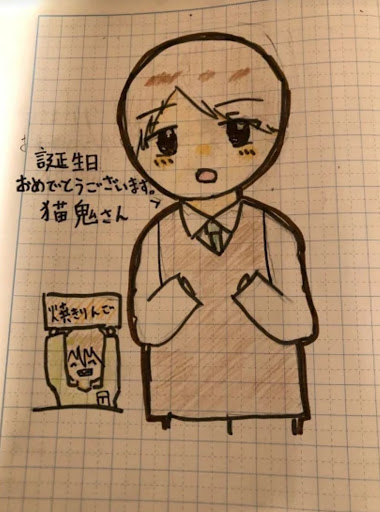 誕生日
おめでとうございます。
猫鬼さん
焼きりんご